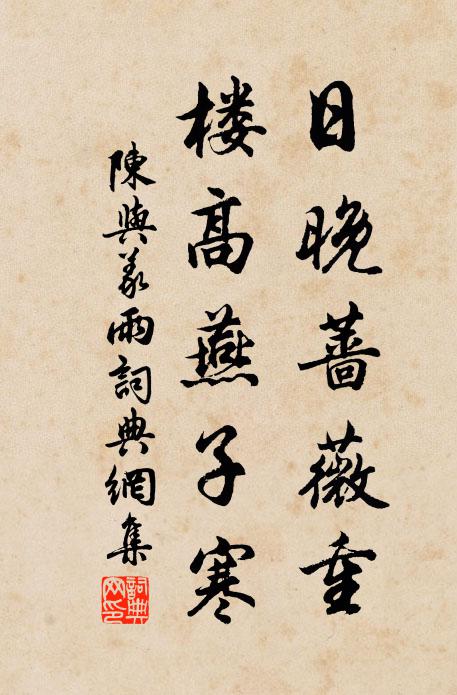 日晚蔷薇重
楼高燕子寒
陳與義雨詞典網集
詞典网印